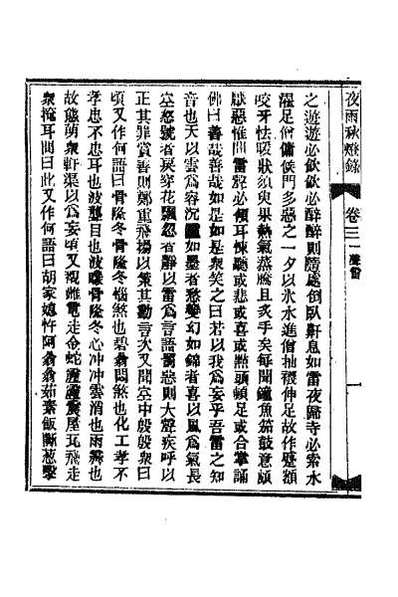 夜雨秋燈錄
卷三
一
之遊遊必飲飲必醉醉則隨處倒臥鼾息如雷夜歸寺必索水
濯足僧傭侯門多惡之一夕以氷水進僧抽襪伸足故作蹙額
咬牙怯暖狀須臾果熱氣蒸騰且炙手矣每聞鐘魚笳鼓意頗
厭惡惟聞雷聲必傾耳悚聽或悲或喜或點頭頓足或合掌誦
佛曰善哉善哉如是如是衆笑之曰若以我爲妄乎吾雷之知
音也天以雲爲容沉鬱如墨者愁變幻如錦者喜以風爲氣長
空怒號者戾穿花飄忽者靜以雷爲言語罰惡則大聲疾呼以
正其罪賞善則鄭重飛揚以策其勳言次又聞空中殷殷衆曰
頃又作何語曰骨隆冬骨隆冬惱煞也碧翁悶煞也化工孝不
孝忠不忠耳也波聾目也波矇骨隆冬心冲冲雲消也雨霽也
故態萌衆軒渠以爲妄頃又覩雌電走金蛇霹靂震屋瓦飛走
衆掩耳問曰此又作何語曰胡家媳忤阿翁翁茹素飯斷葱擊